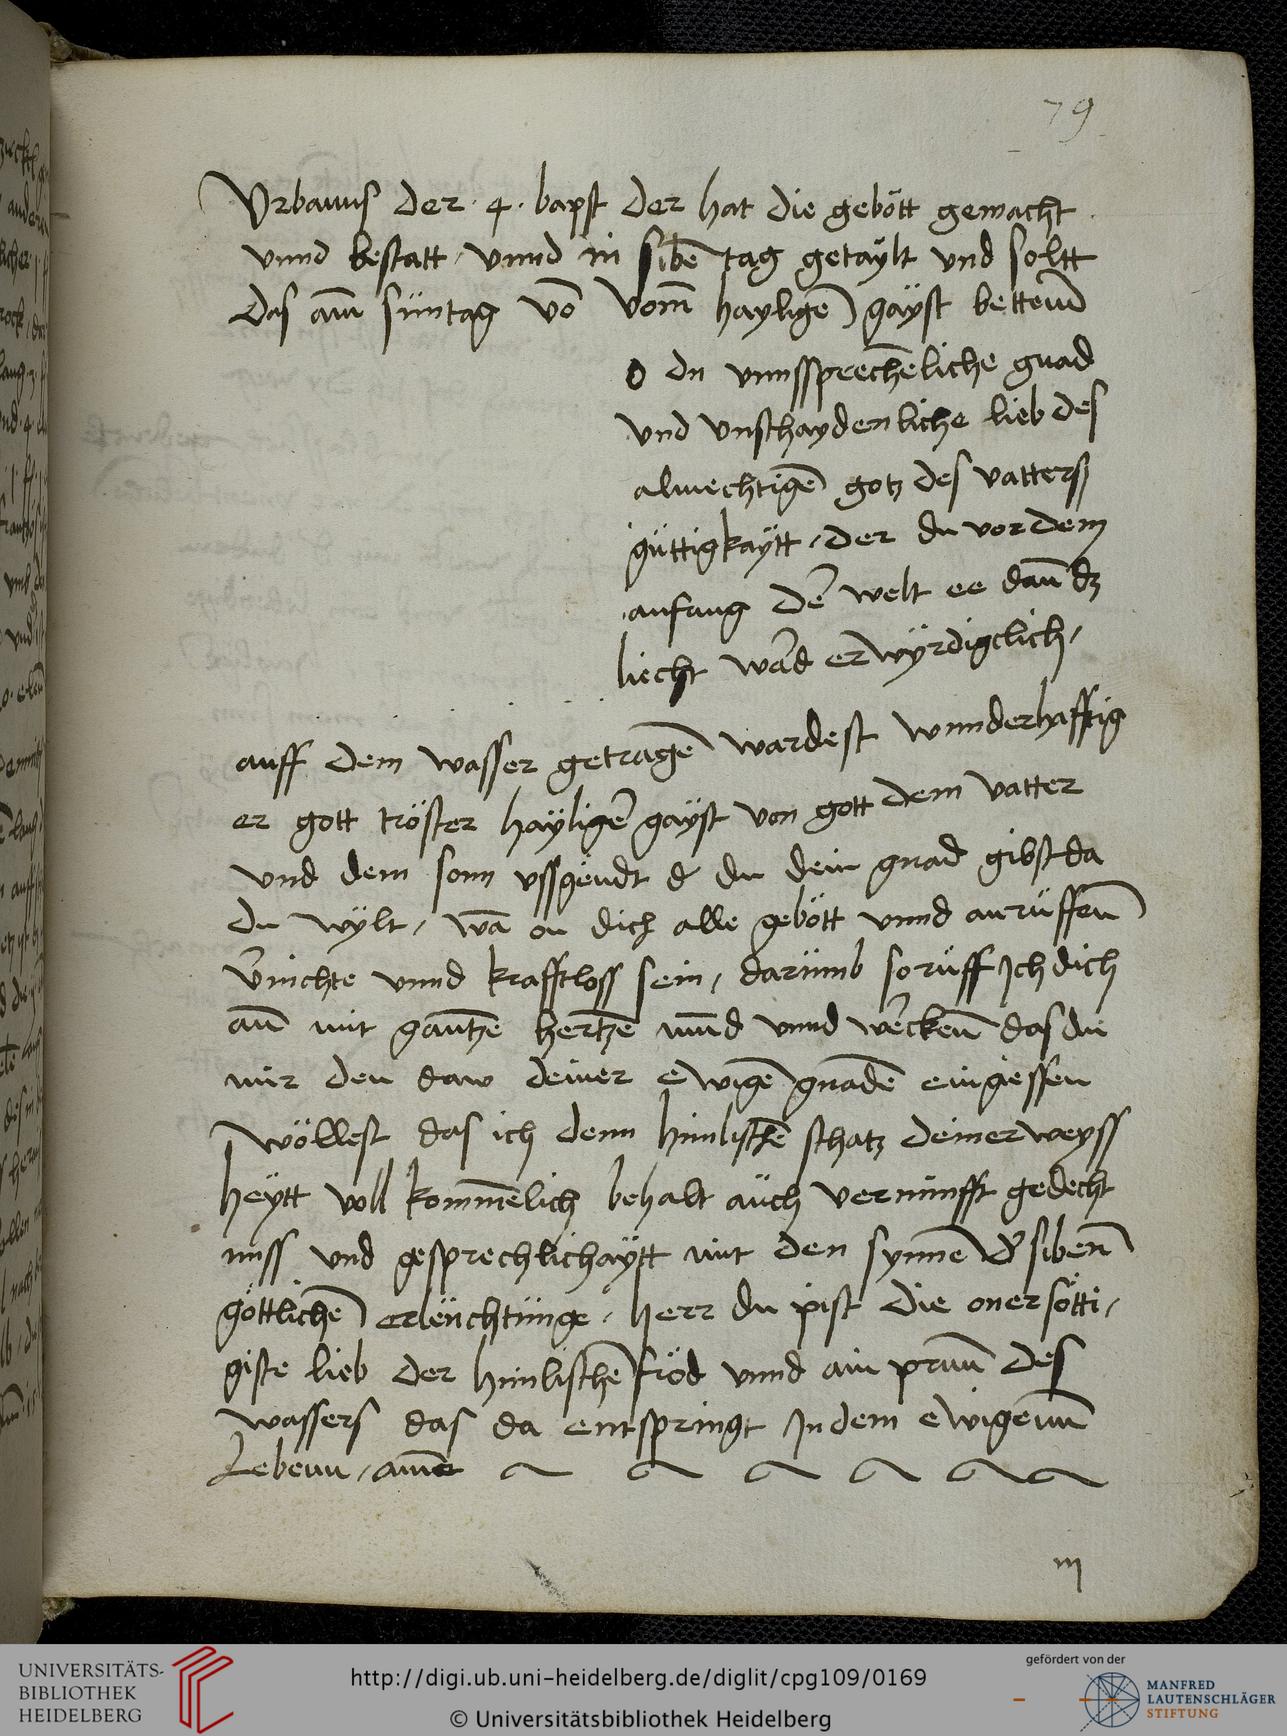 79
Vrbanus der · 4 · bapst der hat die gebött gemacht
vnnd bestatt / vnnd in sibē tag getaÿlt vnd soltt
das am̄ süntag vō vom̄ haÿligē gäÿst bettenn̄
O du vnnssprechēliche gnad
vnd vnschaydenliche lieb des
almechtigē gotz des vatterß
güttigkaÿtt / der du vor dem
anfang der welt ee dan̄ dz
liecht ward erwÿrdigclich /
auff dem wasser getragē wardest wunderhafftig
er gott tröster haÿligē gaÿst von gott dem vatter
vnd dem sonn vssgendt d du dein gnad gibst da
du wÿlt / wā on dich alle gebött vnnd anrüffenn̄
vernichte vnnd krafftloss sein / darümb so rüff Ich dich
an̄ mit gantzē hertzē mūd vnnd werckenn̄ das du
mir den daw deiner ewigē gnadē eingiessen
wöllest das ich denn himlischē schatz deiner weyss
heÿtt voll kommēlich behalt aüch vernünfft gedecht
nuss vnd gesprechlichaÿtt mit den synnē der sibenn̄
göttlichē erleüchtünge / herr du pist die onersötti /
giste lieb der himlischē fröd vnnd ain prun̄ des
wassers das da entspringt In dem ewigenn̄
Lebenn / amen
m
UNIVERSITÄTS-
BIBLIOTHEK
HEIDELBERG
http://digi.ub.uni-heidelberg.de/diglit/cpg109/0169
© Universitätsbibliothek Heidelberg
gefördert von der
MANFRED
LAUTENSCHLÄGER
STIFTUNG